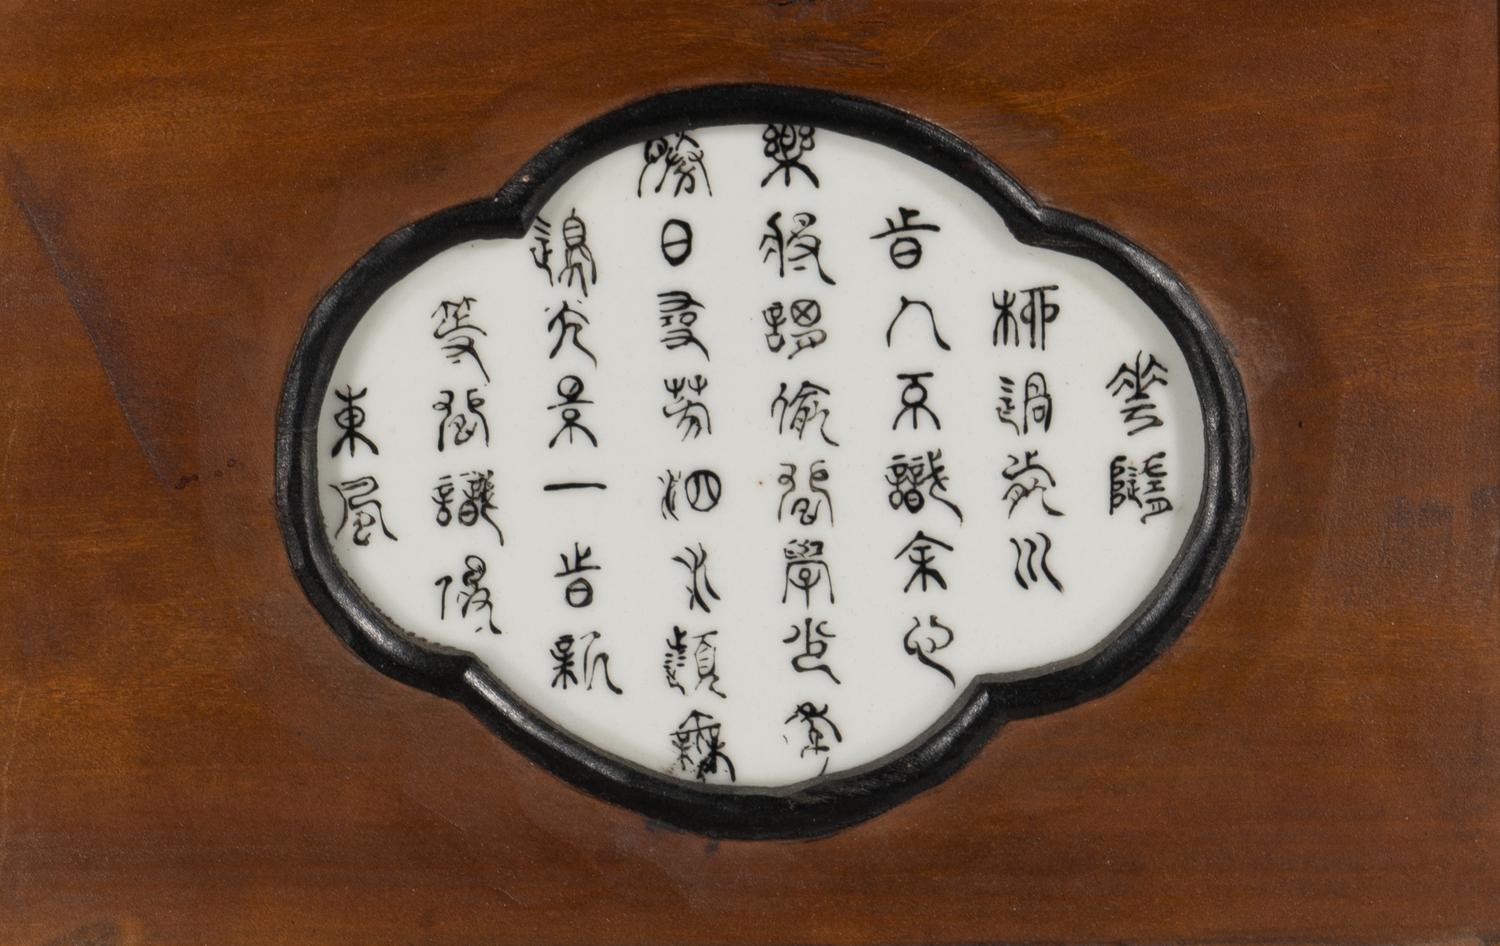 花隨
柳過前川
旹人不識余心
樂將謂偷閒學少年
勝日尋芳泗水瀕無
邊光景一旹新
等閒識得
東風